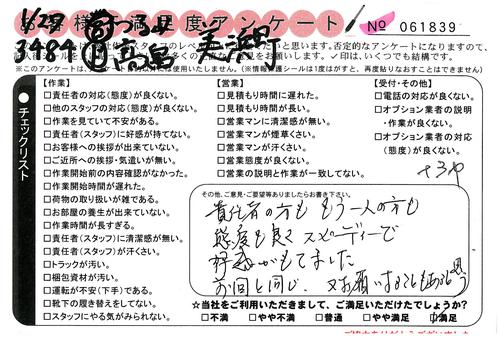 お客様満足度アンケート
No 061839
3484
美浜町
チェックリスト
【作業】
□責任者の対応(態度)が良くない。
□他のスタッフの対応(態度)が良くない。
□作業を見ていて不安がある。
□責任者(スタッフ)に好感が持てない。
□お客様への挨拶が出来ていない。
□ご近所への挨拶・気遣いが無い。
□作業開始前の内容確認がなかった。
□作業開始時間が遅れた。
□荷物の取り扱いが雑である。
□お部屋の養生が出来ていない。
□作業時間が長すぎる。
□責任者(スタッフ)に清潔感が無い。
□責任者(スタッフ)が汗くさい。
□トラックが汚い。
□梱包資材が汚い。
□運転が不安(下手)である。
□靴下の履き替えをしてない。
□スタッフにやる気がみられない。
【営業】
□見積もり時間に遅れた。
□見積もり時間が長い。
□営業マンに清潔感が無い。
□営業マンが煙草くさい。
□営業マンが汗くさい。
□営業態度が良くない。
□営業の説明と作業が一致してない。
【受付・その他】
□電話の対応が良くない。
□オプション業者の説明
・作業が良くない。
□オプション業者の対応
(態度)が良くない。
その他、ご意見・ご要望等ありましたらお書き下さい。
責任者の方も もう一人の方も
態度も良く スピーディーで
好感がもてました
☆当社をご利用いただきまして、ご満足いただけたでしょうか?
□不満 □やや不満 □普通 □やや満足 ☑満足